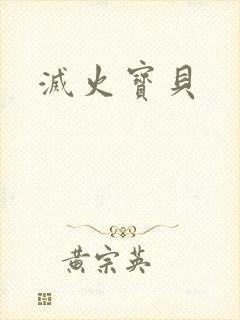 滅火寶貝
黄宗英